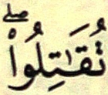 تُقَٰتِلُوا۟ۖ